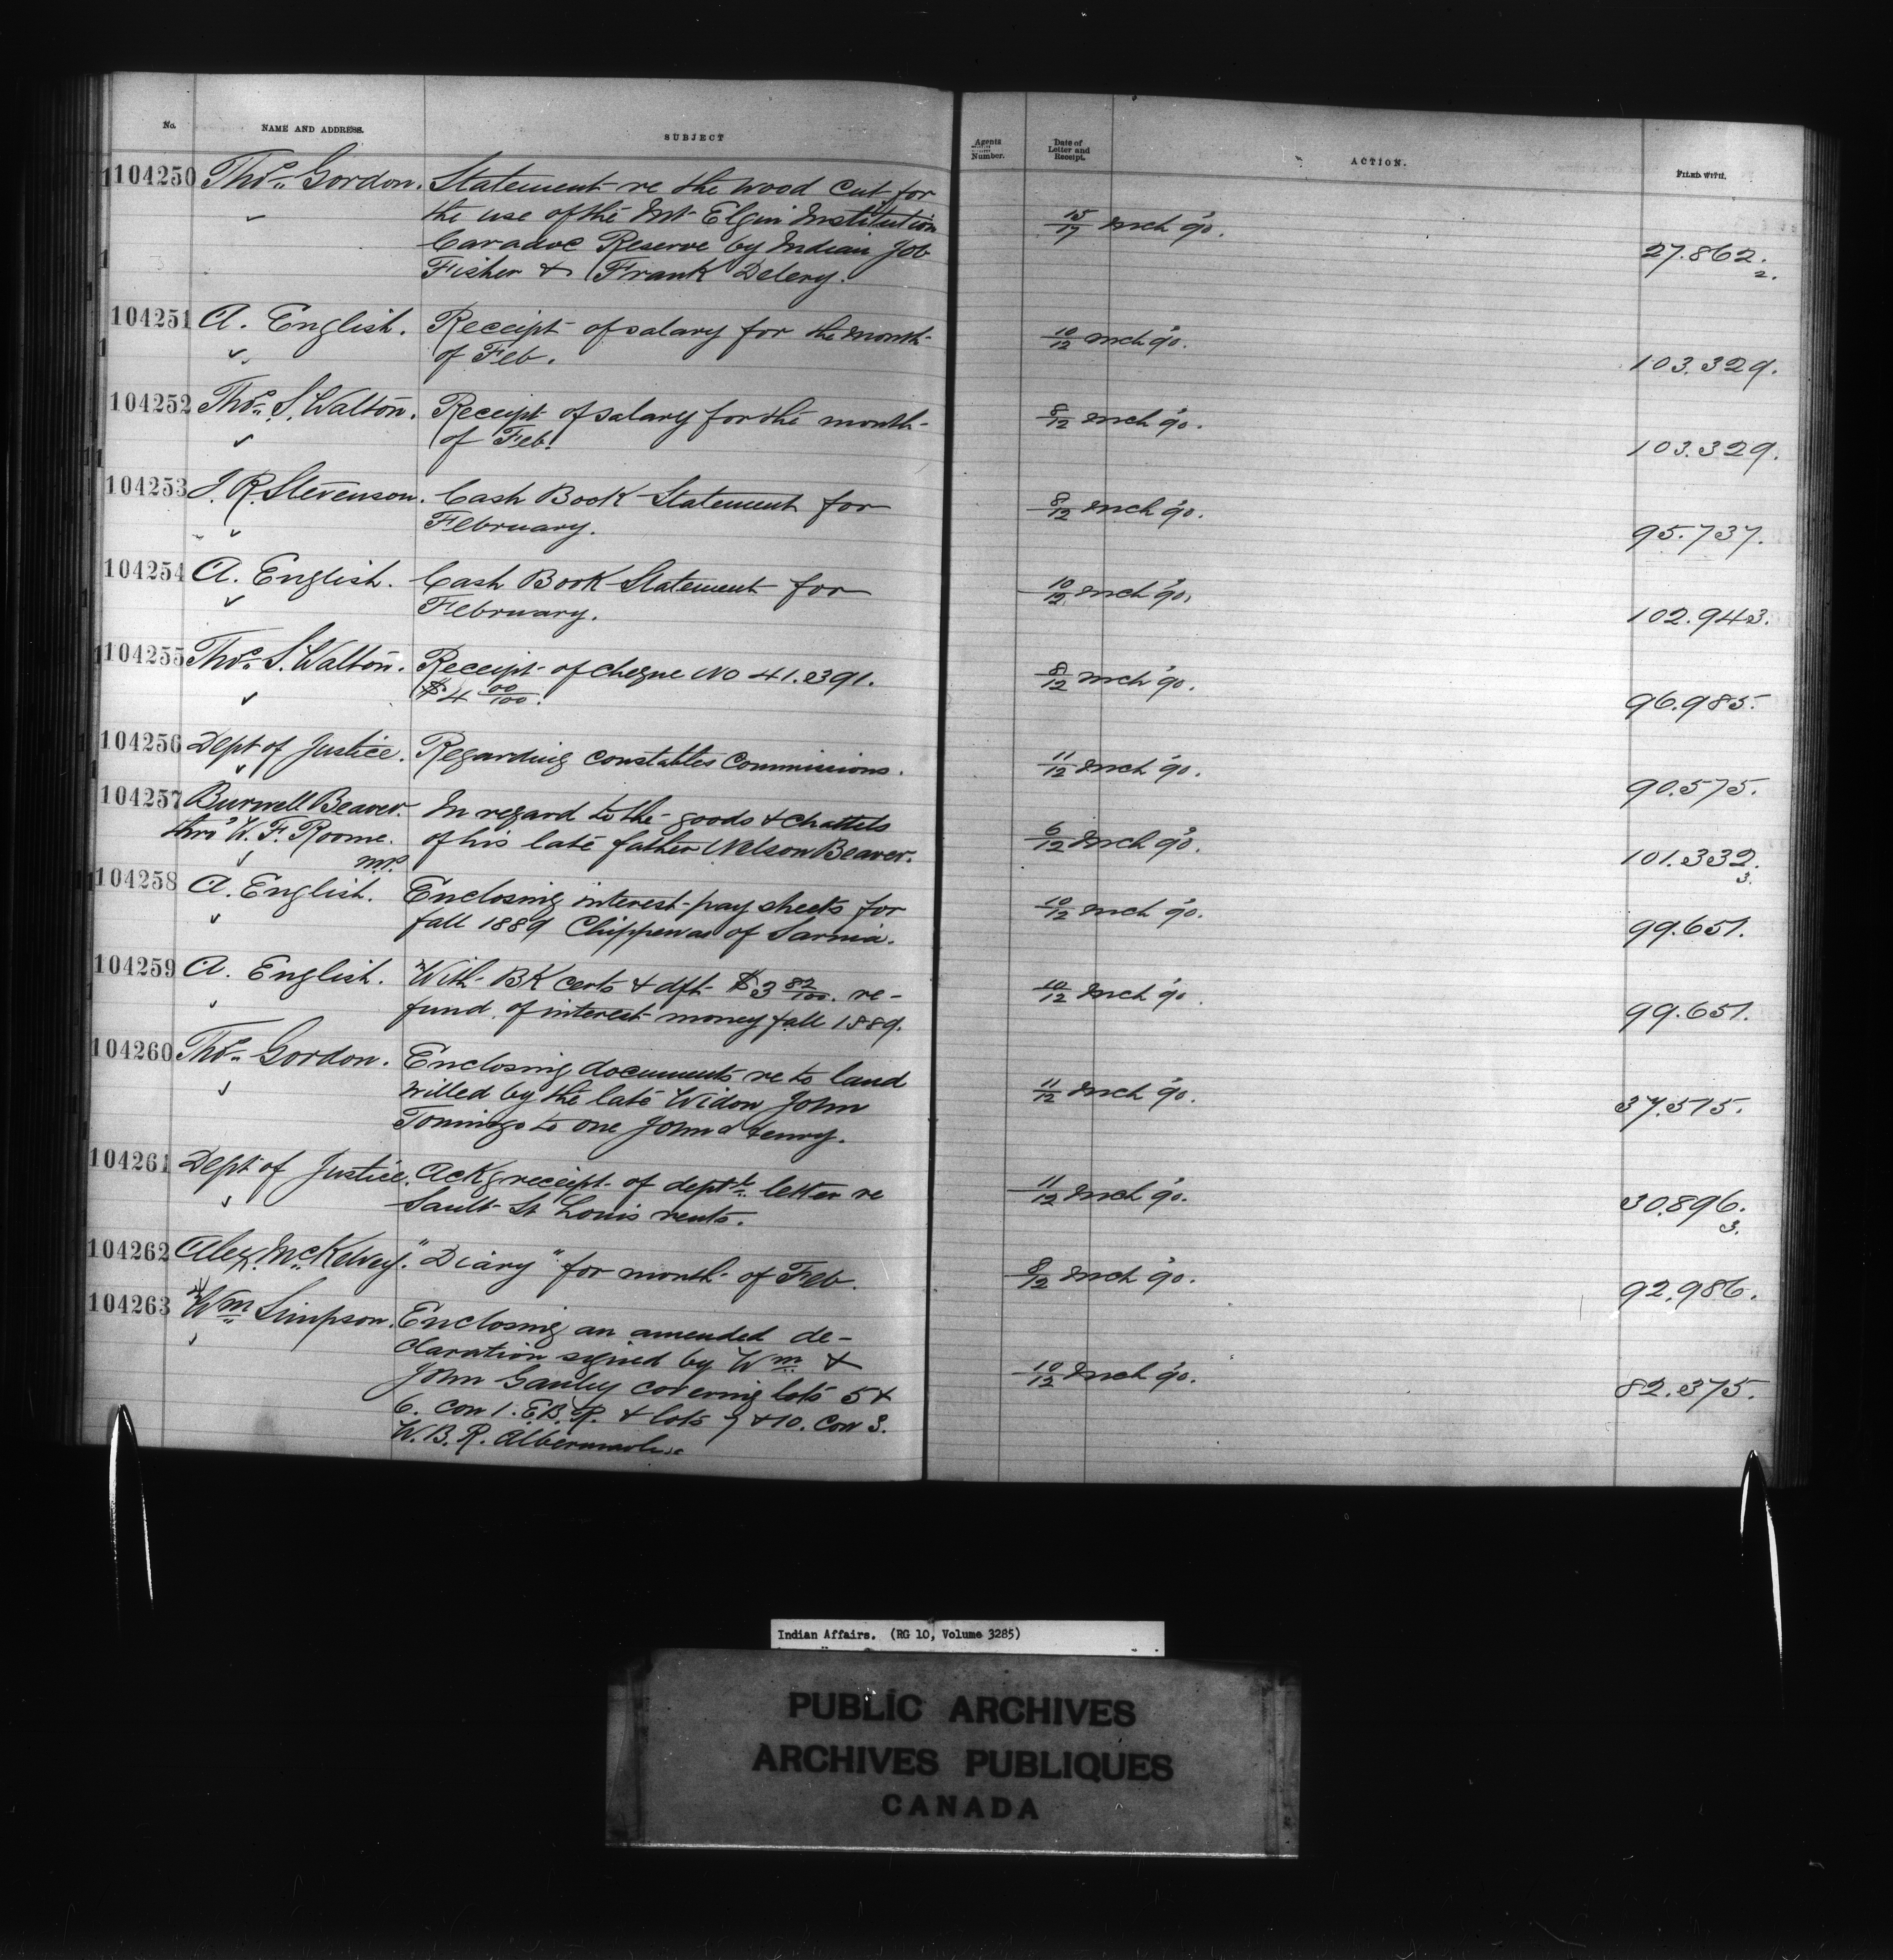 No. NAME AND ADDRESS. SUBJECT Agents Number. Date of Letter and Receipt. ACTION. FILED WITH.
104250 Thos. Gordon. Statement re the wood cut for
the use of the Mt Elgin Institution
Caradoc Reserve by Indian Job
Fisher & Frank Delery.
15/17 Mch 90. 27.862.
2.
104251 A. English. Receipt of salary for the month
of Feb.
10/12 Mch 90. 103.329.
104252 Thos. S. Walton. Receipt of salary for the month
of Feb.
8/12 Mch 90. 103.329.
104253 J. R. Stevenson. Cash Book Statement for
February.
8/12 Mch 90. 95.737.
104254 A. English. Cash Book Statement for
February.
10/12 Mch 90. 102.943.
104255 Thos. S. Walton. Receipt of cheque No 41.391.
$4 00/100.
8/12 Mch 90. 96.985.
104256 Dept of Justice. Regarding constables Commissions.
11/12 Mch 90. 90.575.
104257 Burwell Beaver. In regard to the goods & chattels
thro' W. F. Roome. of his late father Nelson Beaver.
M.P.
6/12 Mch 90. 101.332.
3.
104258 A. English. Enclosing interest pay sheets for
fall 1889 Chippewas of Sarnia.
10/12 Mch 90. 99.651.
104259 A. English. With BK certs & dft $3 82/100. re-
fund of interest money fall 1889.
10/12 Mch 90. 99.651.
104260 Thos. Gordon. Enclosing documents re to land
willed by the late Widow John
Tomingo to one John Henry.
11/12 Mch 90. 37.575.
104261 Dept of Justice. Ackg receipt of deptl letter re
Sault St Louis rents.
11/12 Mch 90. 30.896.
3.
104262 Alex. McKelvey. "Diary" for month of Feb.
8/12 Mch 90. 92.986.
104263 Wm Simpson. Enclosing an amended de-
claration signed by Wm &
John Ganley covering lots 5 &
6. con 1. E.B.R. & lots 7 & 10. Con 3.
W.B.R. Albermarle
10/12 Mch 90. 82.375.
Indian Affairs. (RG 10, Volume 3285)
PUBLIC ARCHIVES
ARCHIVES PUBLIQUES
CANADA